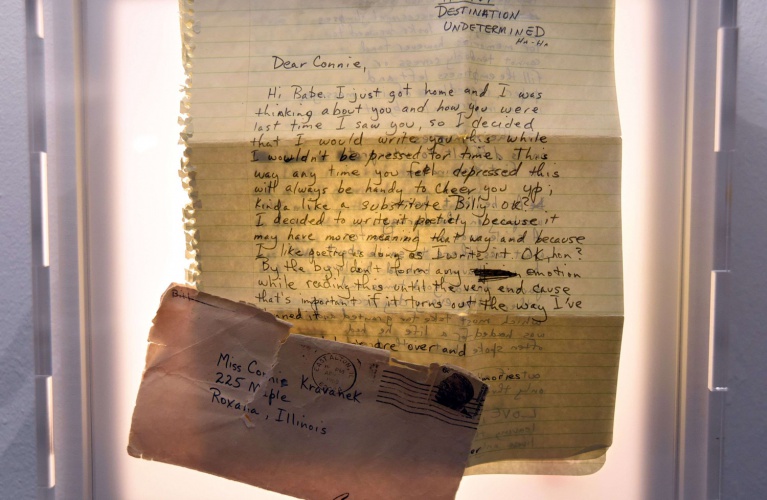 DESTINATION
UNDETERMINED
Ha-Ha
Dear Connie,
Hi Babe. I just got home and I was
thinking about you and how you were
last time I saw you, so I decided
that I would write you this while
I wouldn't be pressed for time. This
way any time you feel depressed this
will always be handy to cheer you up;
Kinda like a substitute Billy OK?
I decided to write it poeticly because it
may have more meaning that way and because
I like poetry as long as I write it OK, hon?
By the by, don't form any emotion
while reading this until the very end cause
that's important if it turns out the way I've
it
are over and
Miss Connie Kravanek
225 Maple
Roxana, Illinois